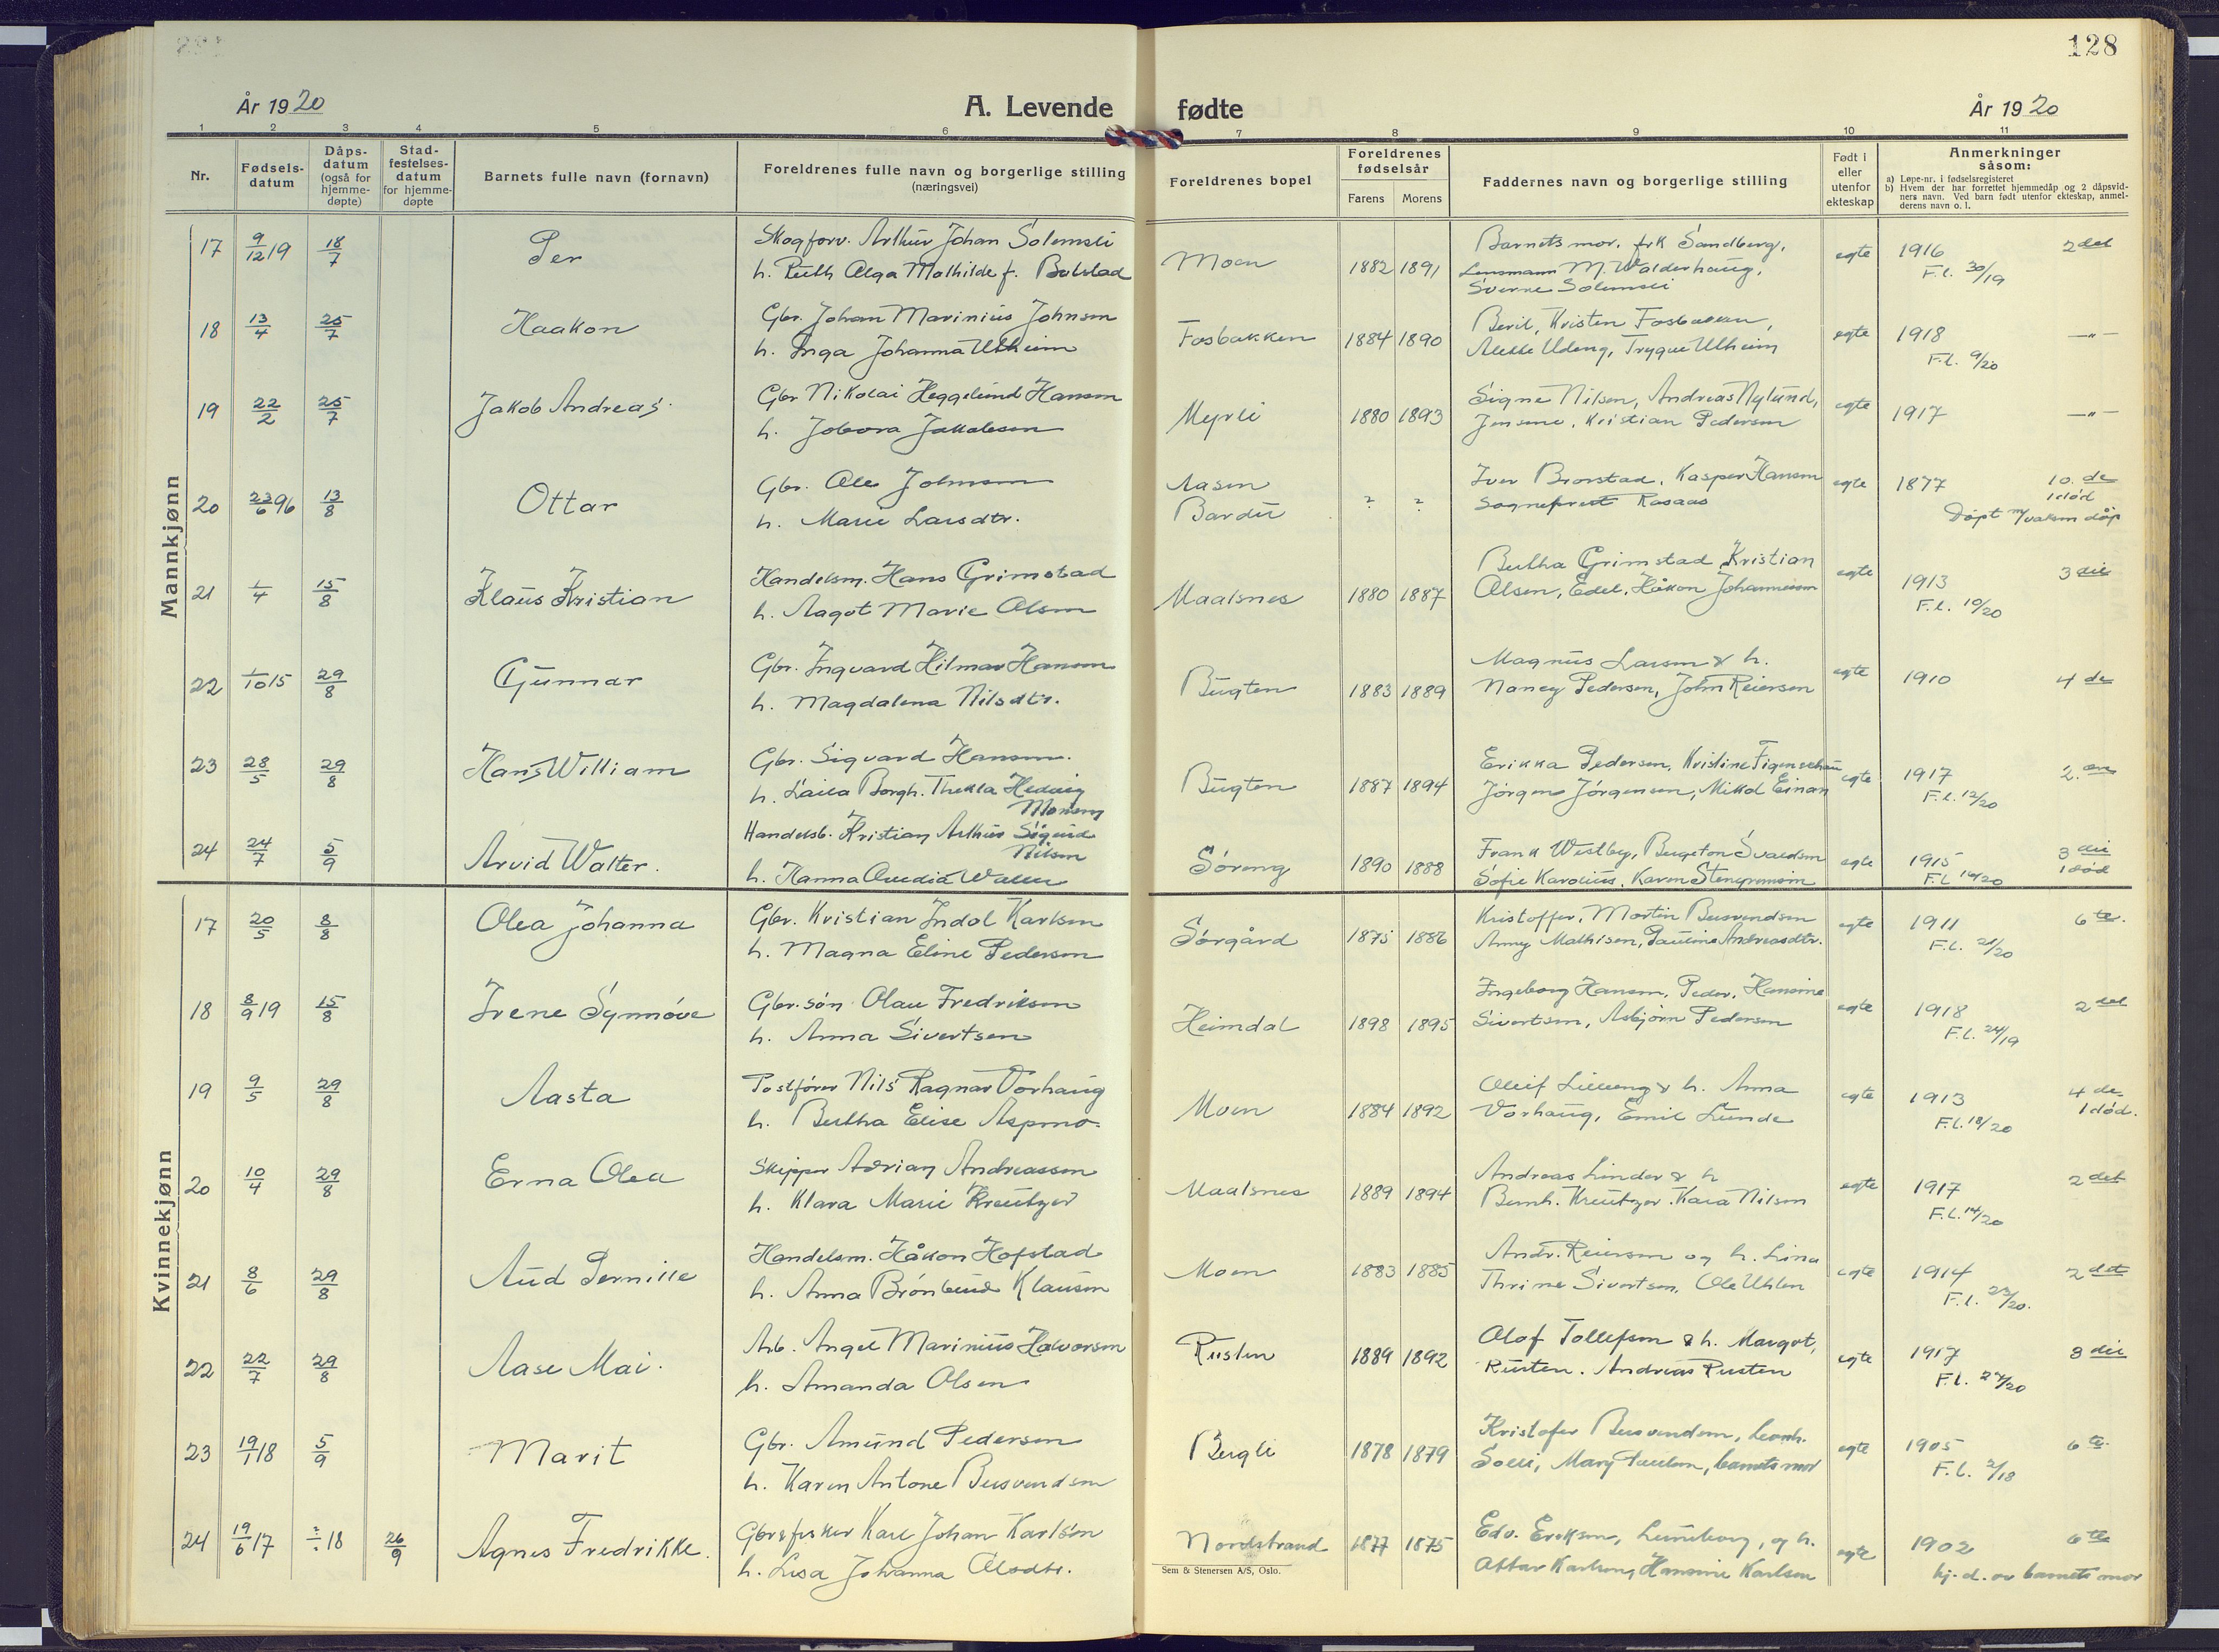 128
År 1920
A. Levende fødte
År 1920
1 2 3 4 5 6 7 8 9 10 11
Nr.
Fødsels-
datum
Dåps-
datum
(også for
hjemme-
døpte)
Stad-
festelses-
datum
for hjemme-
døpte
Barnets fulle navn (fornavn)
Foreldrenes fulle navn og borgerlige stilling
(næringsvei)
Foreldrenes bopel
Foreldrenes
fødselsår
Farens Morens
Faddernes navn og borgerlige stilling
Født i
eller
utenfor
ekteskap
Anmerkninger
såsom:
a) Løpe-nr. i fødselsregisteret
b) Hvem der har forrettet hjemmedåp og 2 dåpsvid-
ners navn. Ved barn født utenfor ekteskap, anmel-
derens navn o. l.
Mannkjønn
17 9/12 19 18/7 Per Skogforv. Arthur Johan Solemsli Moen 1882 1891 Barnets mor, frk Sandberg, egte 1916 2 det
h. Ruth Olga Mathilde f. Bolstad Lensmann M. Walderhaug, F.l. 30/19
Sverre Solemsli
18 13/4 25/7 Haakon Gbr. Johan Marinius Johnsen Fosbakken 1884 1890 Beril, Kristen Fosbakken, egte 1918 —"—
h. Inga Johanna Ulheim Alette Udeng, Trygve Ulheim F.l. 9/20
19 22/2 25/7 Jakob Andreas Gbr Nikolai Heggelund Hansen Myrli 1880 1893 Signe Nilsen, Andreas Nylund, egte 1917 —"—
h. Jakobsen Jensine, Kristian Pedersen
20 23/6 96 13/8 Ottar Gbr. Ole Johnsen Aasen ? ? Iver Brorstad, Kasper Hansen egte 1877 10. de
h. Marie Larsdtr. Bardu Sogneprest Kosaas 1 død
Døpt m/ voksen dåp
21 1/4 15/8 Klaus Kristian Handelsm. Hans Grimstad Maalsnes 1880 1887 Butha Grimstad, Kristian egte 1913 3 die
h. Aagot Marie Olsen Olsen, Edel, Håkon Johannessen F.l. 10/20
22 1/10 15 29/8 Gunnar Gbr. Ingvard Hilmar Hansen Bugten 1883 1889 Magnus Larsen & h. egte 1910 4 de
h. Magdalena Nilsdtr. Nancy Pedersen, John Reiersen
23 28/5 29/8 Hans William Gbr. Sigvard Hansen. Bugten 1887 1894 Erikka Pedersen, Kristine Figenschau egte 1917 2. en
h. Laila Borgh. Thekla Hedvig Monsen Jørgen Jørgensen, Mikal Einan F.l. 12/20
24 24/7 5/9 Arvid Walter. Handelsb. Kristian Arthur Sigurd Nilsen Søreng 1890 1888 Frank Westby, Bergeton Svaldsen egte 1915 3 die
h. Hanna Sofie Karolius, Karen F.l. 16/20 1 død
Kvinnekjønn
17 20/5 8/8 Olea Johanna Gbr. Kristian Indal Karlsen Sørgård 1875 1886 Kristoffer, Martin Busvendsen egte 1911 6 te.
h. Magna Eline Pedersen Anny Mathisen, Pauline Andreasdtr. F.l. 21/20
18 8/9 19 15/8 Irene Synnøve Gbr. søn Olav Fredriksen Heimdal 1898 1895 Ingeborg Hansen, Peder, Hansine egte 1918 2 det
h. Anna Sivertsen Sivertsen, Asbjørn Pedersen F.l. 24/19
19 9/5 29/8 Aasta Postfører Nils Ragnar Vorhaug Moen 1884 1892 Olleif Lilleeng & h. Anna egte 1913 4 de.
h. Bertha Elise Aspmo. Vorhaug, Emil Lunde F.l. 18/20 1 død.
20 10/4 29/8 Erna Olea Skipper Adrian Andreassen Maalsnes 1889 1894 Andreas Linder & h egte 1917 2 det
h. Klara Marie Kreutzer Bernh. Kreutzer. Kaia Nilsen F.l. 14/20
21 8/6 29/8 Aud Pernille Handelsm. Håkon Hofstad Moen 1883 1885 Andr. Reiersen og h. Lina egte 1914 2 det
h. Anna Brønlund Klausen Thrine Sivertsen, Ole Uhlen F.l. 23/20.
22 22/7 29/8 Aase Mai. Arb. Angel Marinius Halvorsen Rusten 1889 1892 Olaf Tollefsen & h. Margot, egte 1917 3 die
h. Amanda Olsen Rusten. Andreas Rusten F.l. 27/20
23 19/1 18 5/9 Marit Gbr. Amund Pedersen Bergli 1878 1879 Kristofer Busvendsen, Leonh. egte 1905 6 te.
h. Karen Antone Busvendsen Solli, Mary Paulsen, barnets mor F.l. 2/18
24 19/6 17 ? 18 26/9 Agnes Fredrikke. Gbr & fisker Karl Johan Karlsen Nordstrand 1877 1875 Edv. Eriksen, Lenvik og h. egte 1902 6 te
h. Lisa Johanna Olsdtr. Ottar Karlsen, Hansine Karlsen hj. d. av barnets mor
Sem & Stenersen A/S, Oslo.